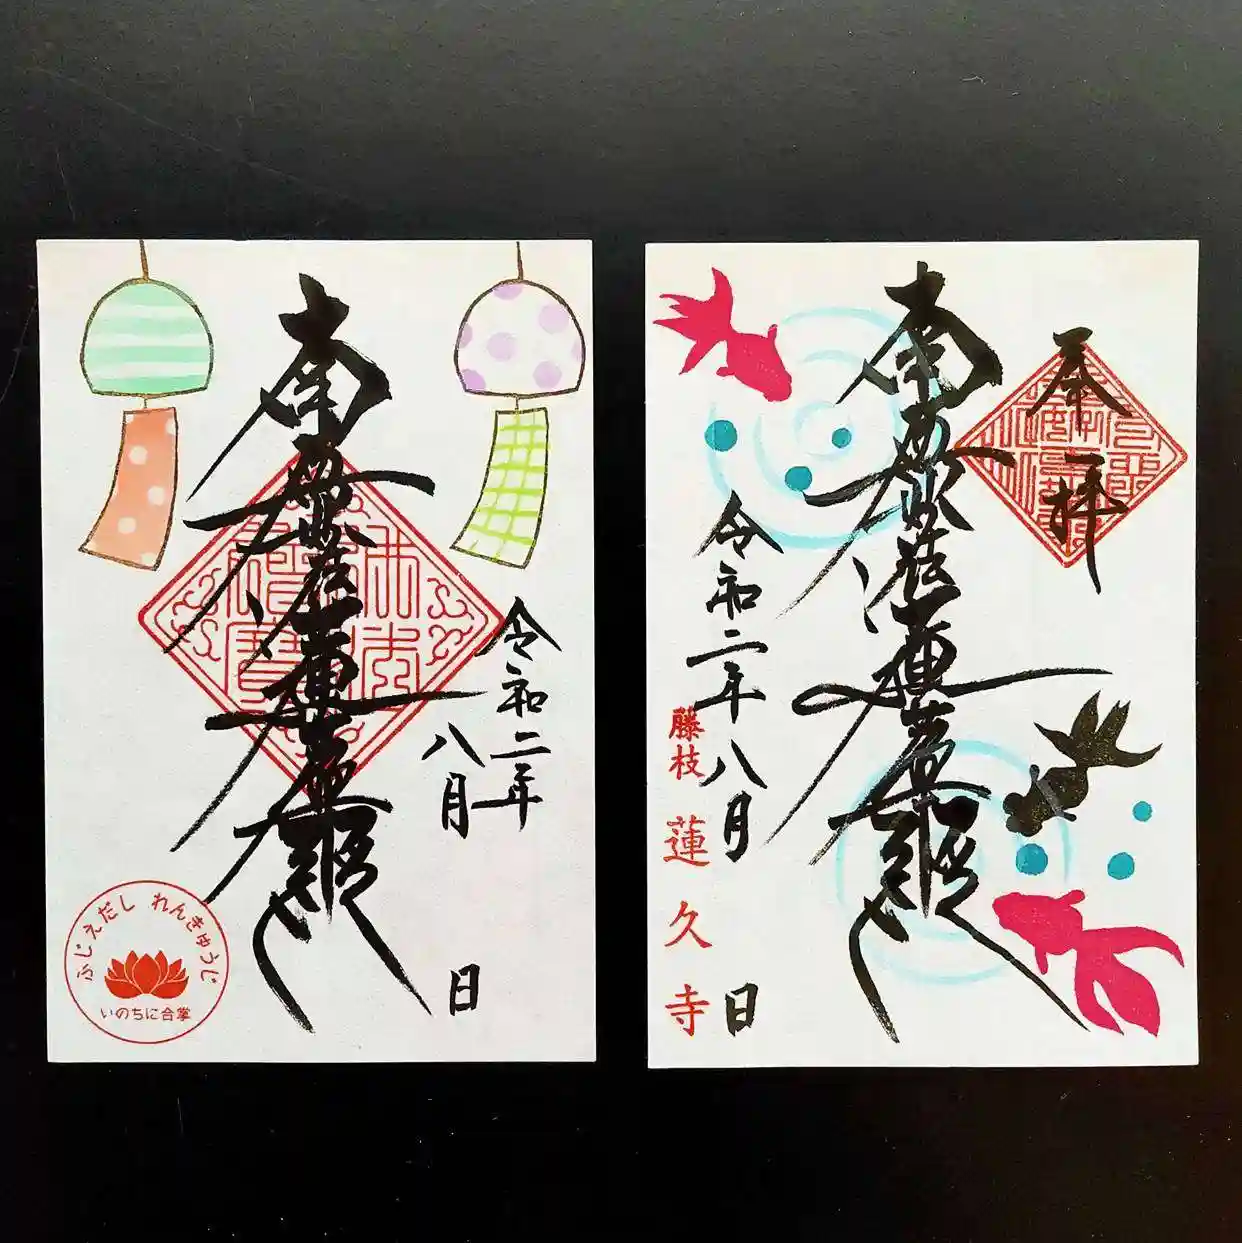 南無妙法蓮華経
令和二年
八月
日
ふじえだし れんきゅうじ
いのちに合掌
奉拝
南無妙法蓮華経
令和二年八月
日
藤枝
蓮久寺